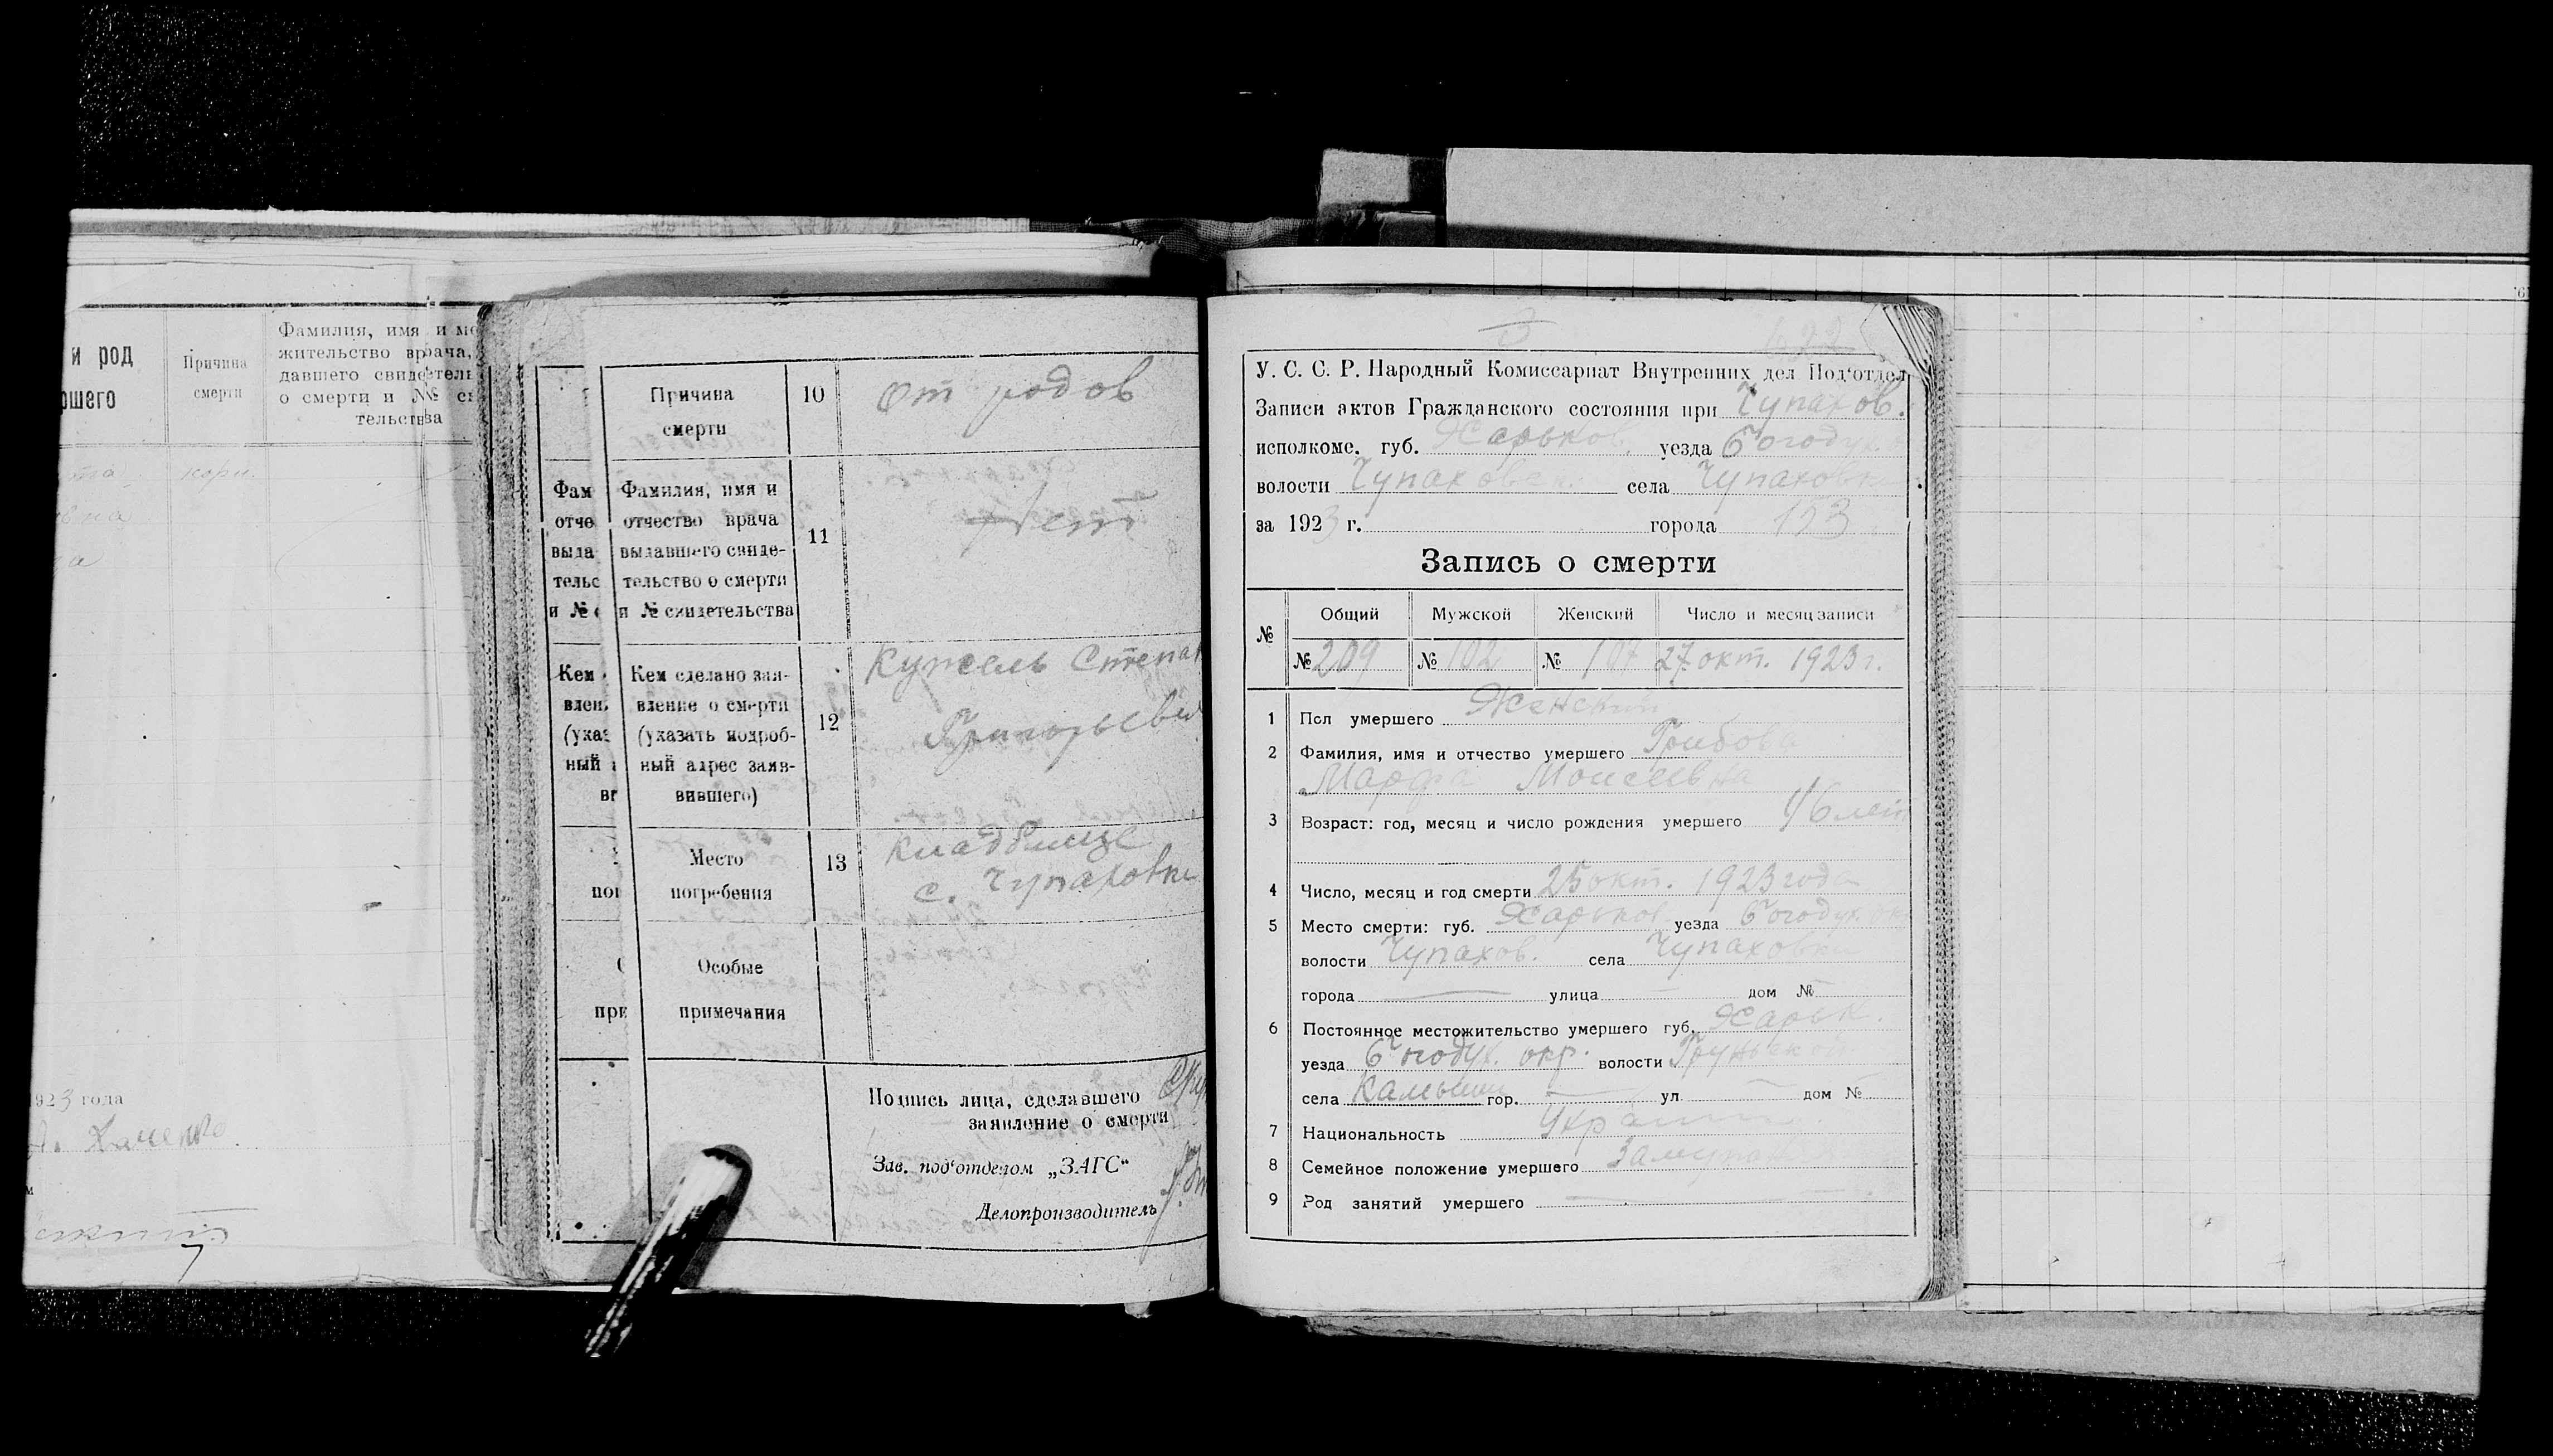 и род
ршего
Причина
смерти
Фамилия, имя и ме
жительство врача,
давшего свидетель
о смерти и №№ св
тельства
та
кори.
вна
а
1923 года
Причина
смерти
10
От родов
Фам
отче
выда
тельс
и №
Фамилия, имя и
отчество врача
выдавшего свиде-
тельство о смерти
и № свидетельства
11
Нет
Кем
влен
(указ
ный
вг
Кем сделано зая-
вление о смерти
(указать подроб-
ный адрес заяв-
вившего)
12
Кужель Степан
Григорьевич
пог
Место
погребения
13
Кладбище
с. Чупаховки
при
Особые
примечания
Подпись лица, сделавшего
заявление о смерти
Зав. под'отделом „ЗАГС“
Делопроизводитель
У. С. С. Р. Народный Комиссариат Внутренних дел Под'отдел
Записи актов Гражданского состояния при Чупахов.
исполкоме. губ. Харьков. уезда Богодух.
волости Чупаховск. села Чупаховки
за 1923 г. города 153
Запись о смерти
№ Общий Мужской Женский Число и месяц записи
№ 209 № 102 № 107 27 окт. 1923 г.
1 Пол умершего Женский
2 Фамилия, имя и отчество умершего Грибова
Марфа Моисеевна
3 Возраст: год, месяц и число рождения умершего 46 лет
4 Число, месяц и год смерти 25 окт. 1923 года
5 Место смерти: губ. Харьков. уезда Богодух. ок
волости Чупахов. села Чупаховки
города — улица — дом № —
6 Постоянное местожительство умершего губ. Харьк.
уезда Богодух. окр. волости Груньск
села Камыши гор. — ул — дом № —
7 Национальность Украин
8 Семейное положение умершего Замужн
9 Род занятий умершего —